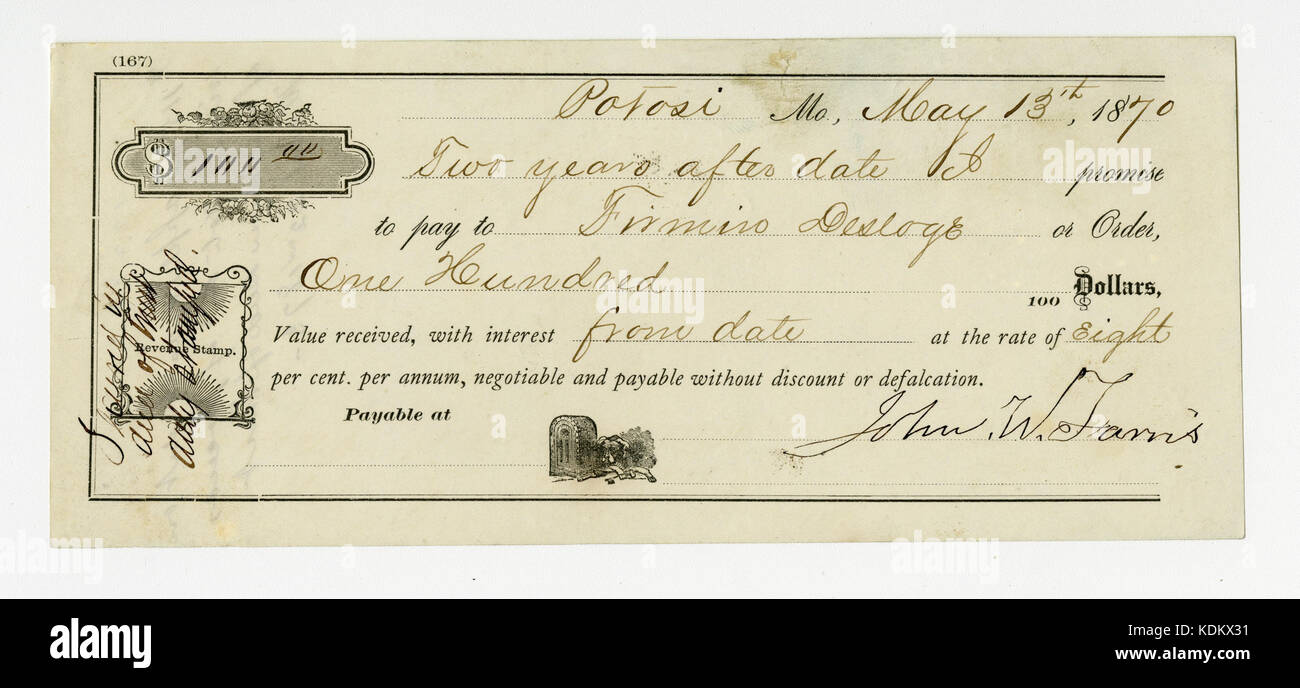 (167)
Potosi Mo, May 13th, 1870
$ 100 00
Two years after date I promise
to pay to Firmin Desloge or Order,
One Hundred 100 Dollars,
Value received, with interest from date at the rate of Eight
per cent. per annum, negotiable and payable without discount or defalcation.
Payable at
John W. Farris
Revenue Stamp.
alamy
alamy stock photo
KDKX31
www.alamy.com